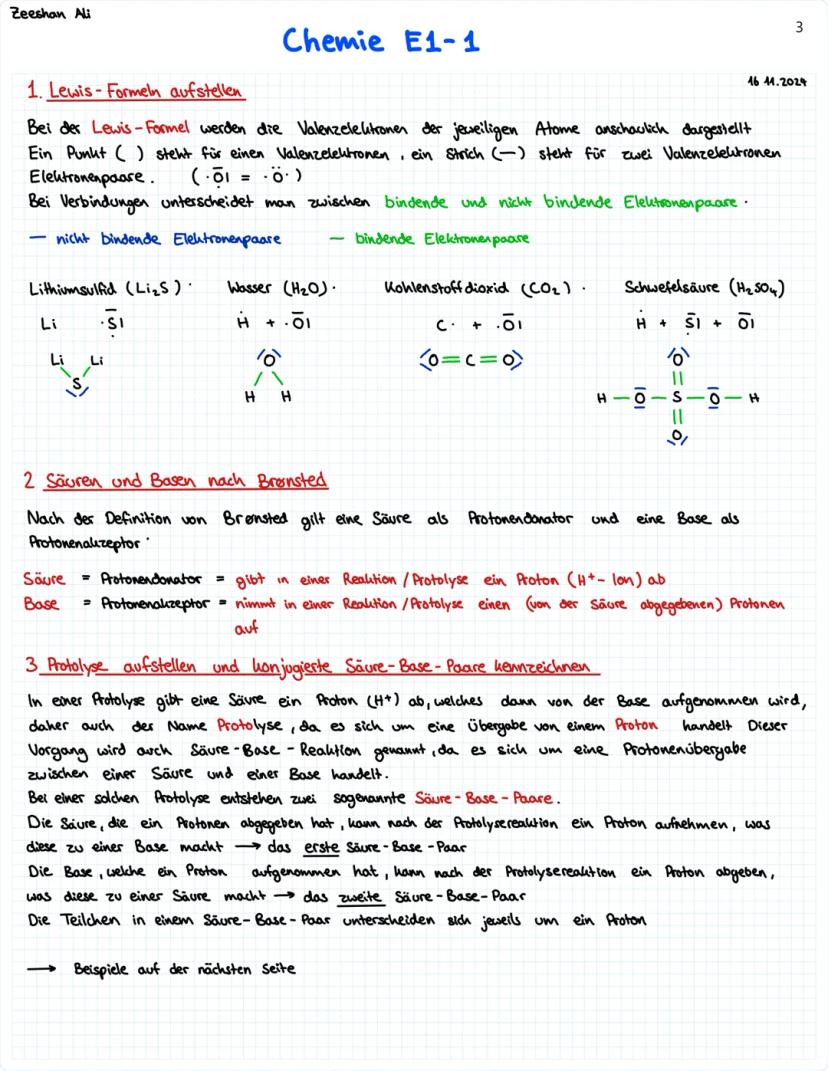 Zeeshan Ali
3
Chemie E1-1
16 11.2024
1. Lewis-Formeln aufstellen
Bei der Lewis-Formel werden die Valenzelektronen der jeweiligen Atome anschaulich dargestellt
Ein Punkt ( ) steht für einen Valenzelektronen, ein Strich (—) steht für zwei Valenzelektronen
Elektronenpaare. (·Ō̇l = ·Ö·)
Bei Verbindungen unterscheidet man zwischen bindende und nicht bindende Elektronenpaare.
— nicht bindende Elektronenpaare — bindende Elektronenpaare
Lithiumsulfid (Li₂S). Wasser (H₂O). Kohlenstoffdioxid (CO₂). Schwefelsäure (H₂SO₄)
Li ·S̄l Ḣ + ·Ōl C· + ·Ōl Ḣ + S̄l + Ōl
Li Li O O=C=O O
S H H H—O—S—O—H
O
2 Säuren und Basen nach Brønsted
Nach der Definition von Brønsted gilt eine Säure als Protonendonator und eine Base als
Protonenakzeptor.
Säure = Protonendonator = gibt in einer Reaktion/Protolyse ein Proton (H⁺-Ion) ab
Base = Protonenakzeptor = nimmt in einer Reaktion/Protolyse einen (von der Säure abgegebenen) Protonen
auf
3 Protolyse aufstellen und konjugierte Säure-Base-Paare kennzeichnen
In einer Protolyse gibt eine Säure ein Proton (H⁺) ab, welches dann von der Base aufgenommen wird,
daher auch der Name Protolyse, da es sich um eine Übergabe von einem Proton handelt Dieser
Vorgang wird auch Säure-Base-Reaktion genannt, da es sich um eine Protonenübergabe
zwischen einer Säure und einer Base handelt.
Bei einer solchen Protolyse entstehen zwei sogenannte Säure-Base-Paare.
Die Säure, die ein Protonen abgegeben hat, kann nach der Protolysereaktion ein Proton aufnehmen, was
diese zu einer Base macht → das erste Säure-Base-Paar
Die Base, welche ein Proton aufgenommen hat, kann nach der Protolysereaktion ein Proton abgeben,
was diese zu einer Säure macht → das zweite Säure-Base-Paar
Die Teilchen in einem Säure-Base-Paar unterscheiden sich jeweils um ein Proton
→ Beispiele auf der nächsten Seite